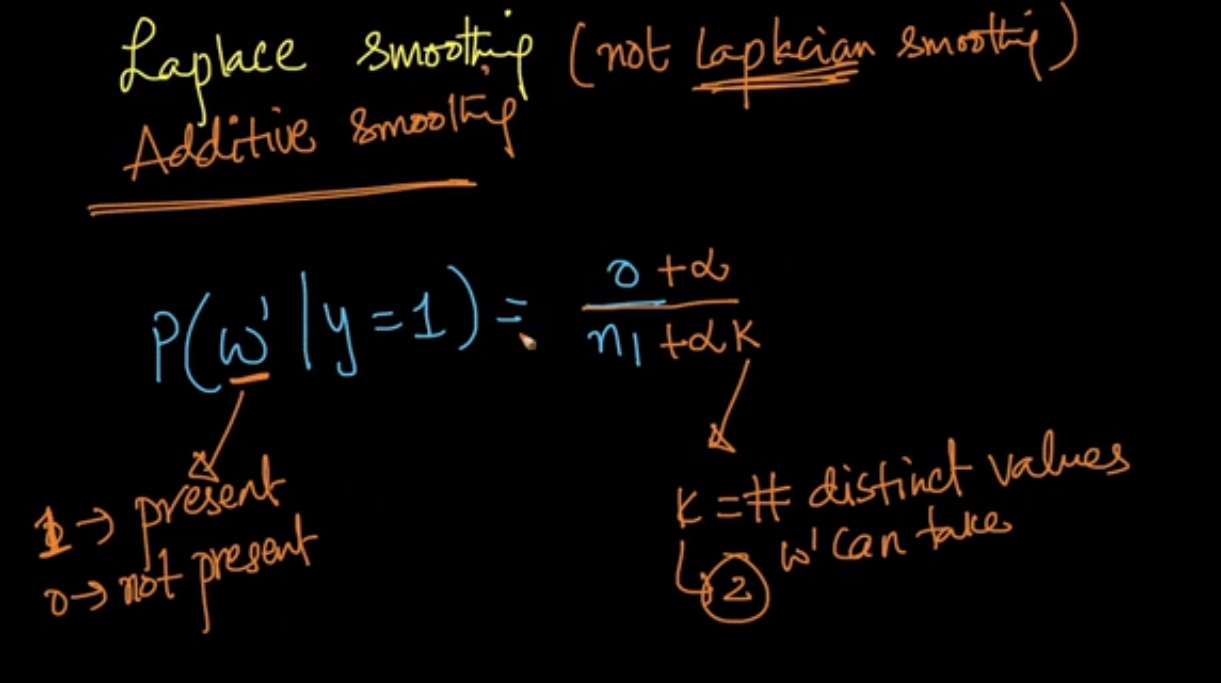 Laplace smoothing (not Laplacian smoothing)
Additive smoothing
P(w'|y=1) = 0+α
n1+αK
1→ present
0→ not present
K = # distinct values
w' can take
2